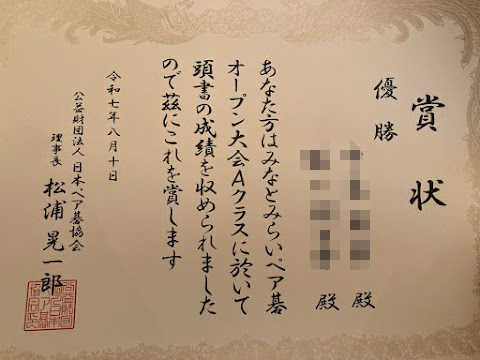 賞状
優勝
殿
殿
あなた方はみなとみらいペア碁
オープン大会Aクラスに於いて
頭書の成績を収められました
ので茲にこれを賞します
令和七年八月十日
公益財団法人日本ペア碁協会
理事長 松浦晃一郎